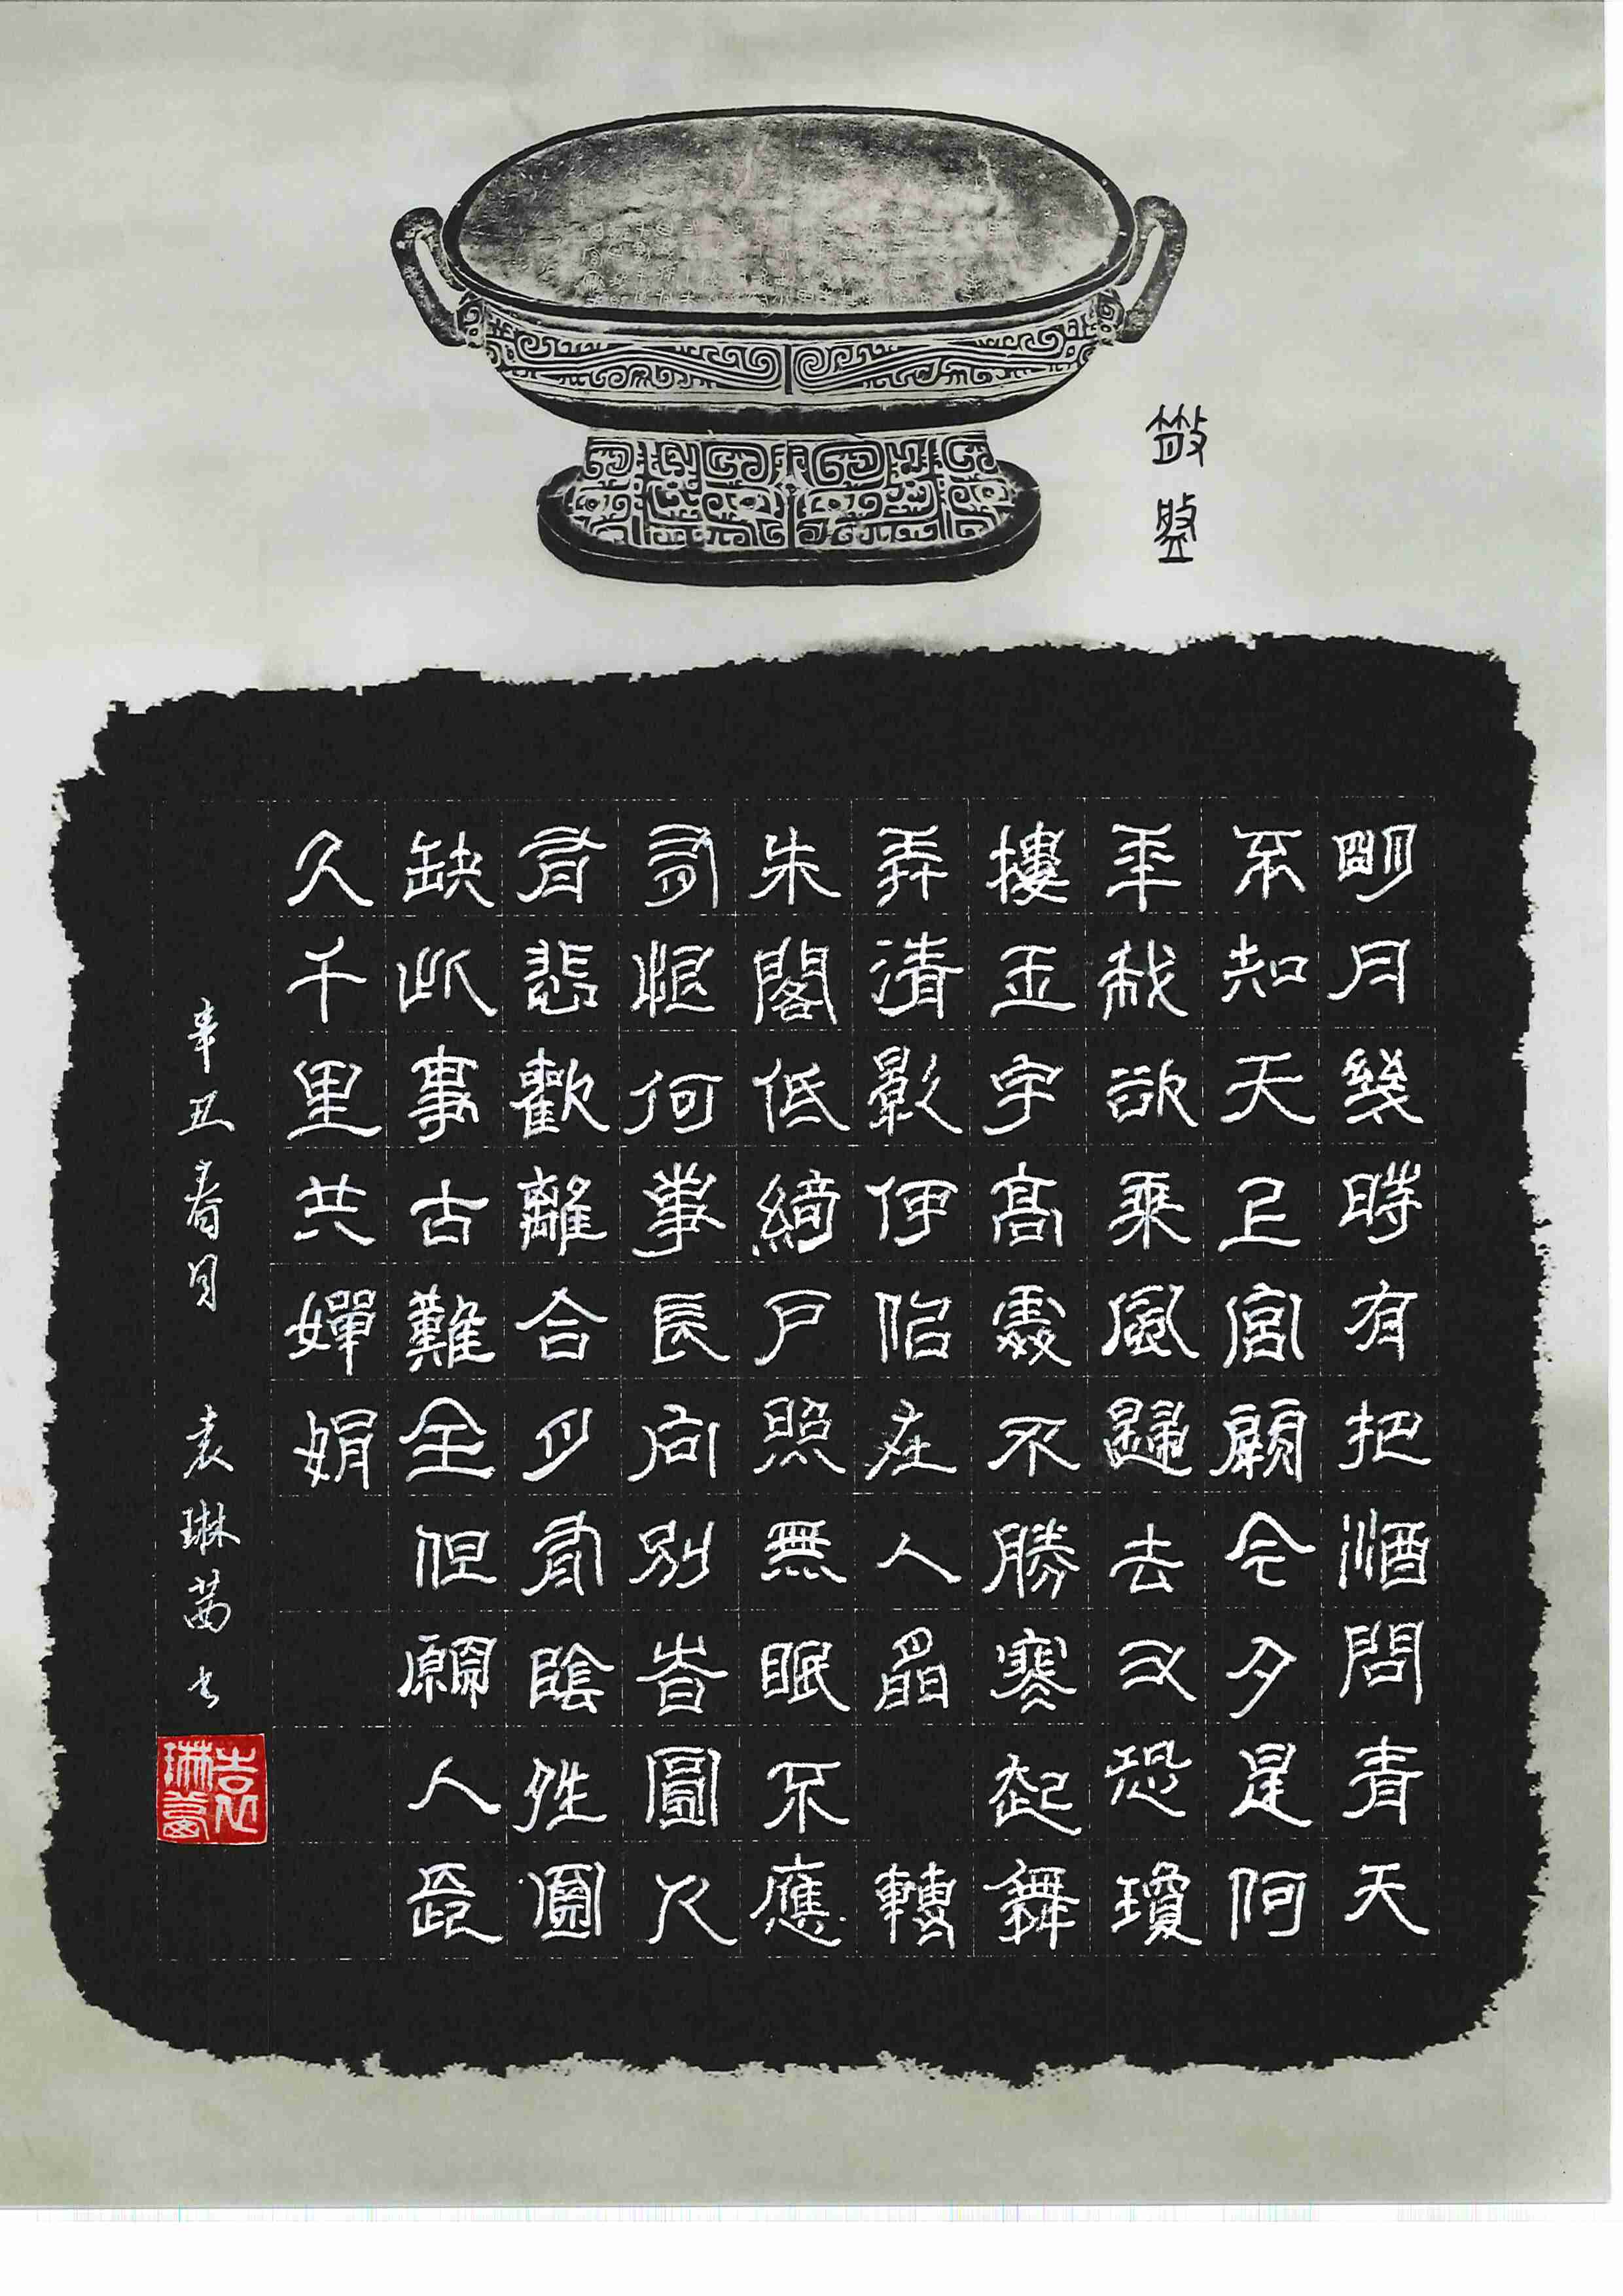 散盤
明月幾時有把酒問青天
不知天上宮闕今夕是何
年我欲乘風歸去又恐瓊
樓玉宇高處不勝寒起舞
弄清影何似在人間 轉
朱閣低綺戶照無眠不應
有恨何事長向別時圓人
有悲歡離合月有陰晴圓
缺此事古難全但願人長
久千里共嬋娟
辛丑春月 袁琳茜书
袁琳茜